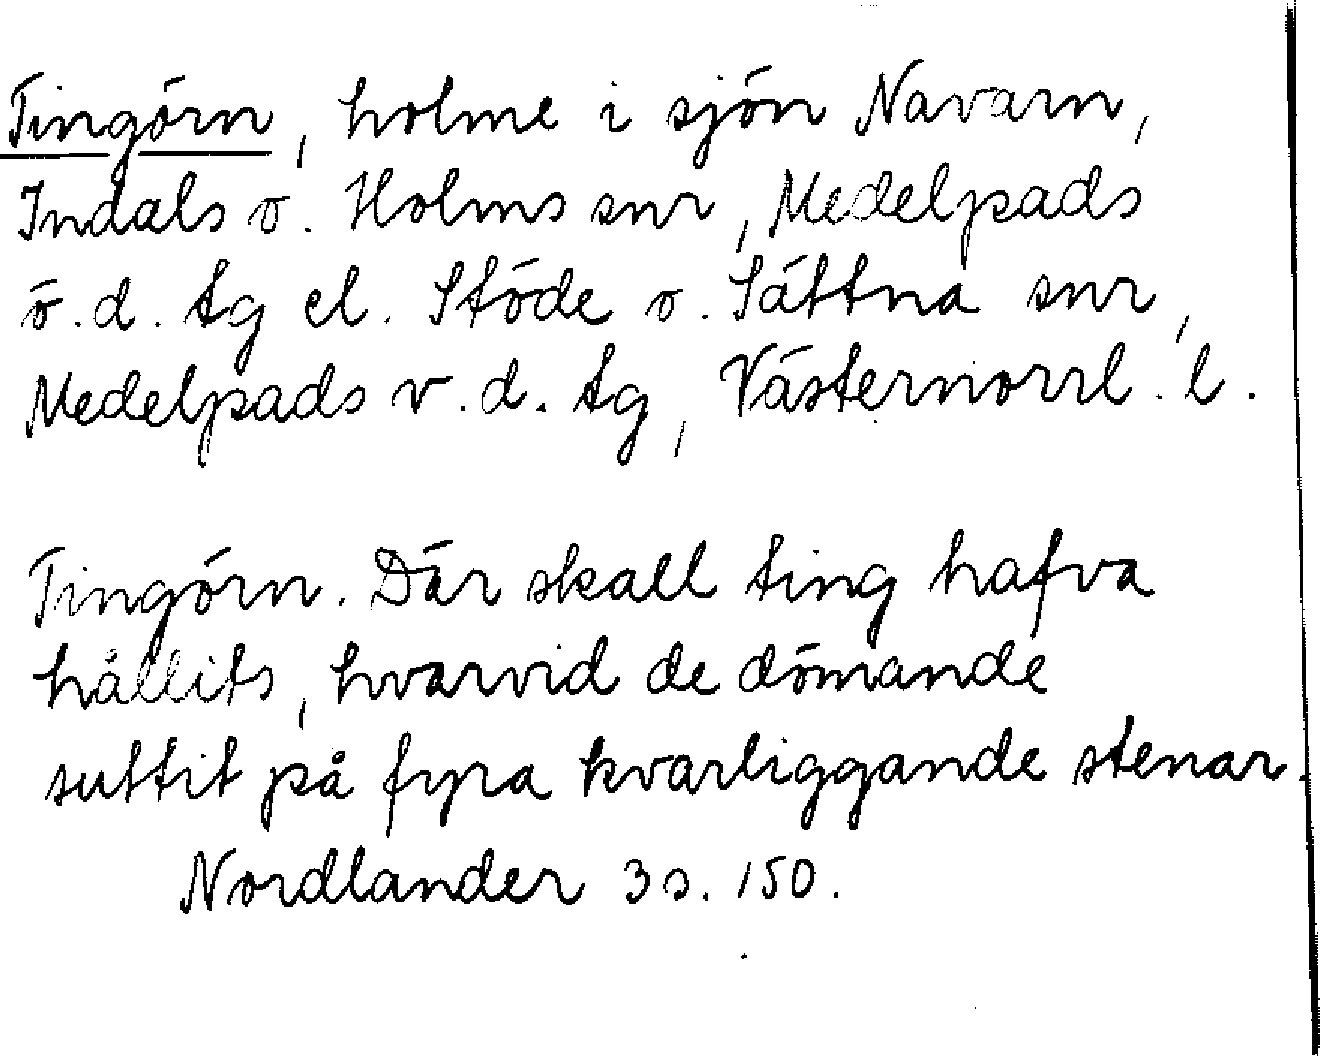 Tingörn, holme i sjön Navarn,
Indals o. Holms snr, Medelpads
ö.d. tg el. Stöde o. Sättna snr,
Medelpads v.d. tg, Västernorrl. l.
Tingörn. Där skall ting hafva
hållits, hvarvid de dömande
suttit på fyra kvarliggande stenar.
Nordlander 3 s. 150.